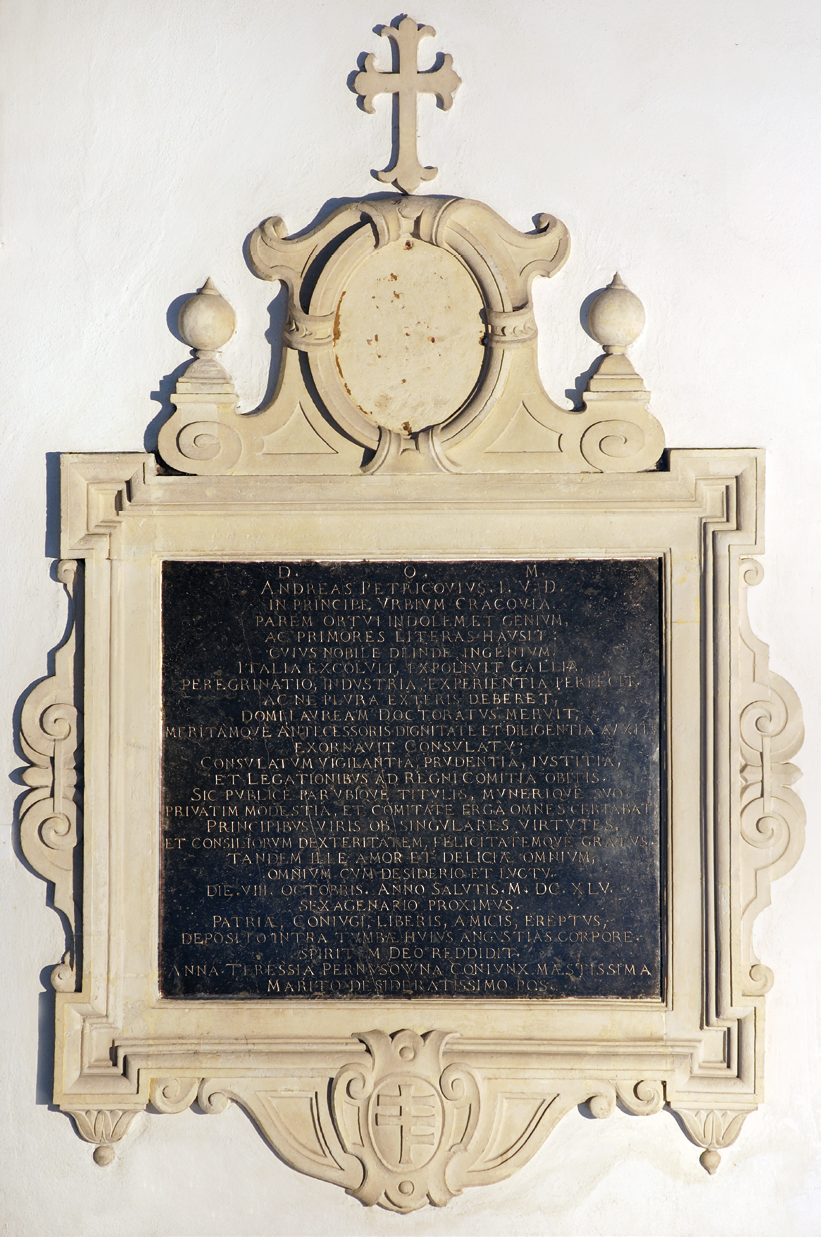 D. O. M.
ANDREAS PETRICOVIVS. I. V. D.
IN PRINCIPE VRBIVM CRACOVIA.
PAREM ORTVI INDOLEM ET GENIVM,
AC PRIMORES LITERAS HAVSIT:
CVIVS NOBILE DEINDE INGENIVM
ITALIA EXCOLVIT, EXPOLIVIT GALLIA,
PEREGRINATIO, INDVSTRIA, EXPERIENTIA PERFECIT.
AC NE PLVRA EXTERIS DEBERET,
DOMI LAVREAM DOCTORATVS MERVIT,
MERITAMQVE ANTECESSORIS DIGNITATE ET DILIGENTIA AVXIT,
EXORNAVIT CONSVLATV;
CONSVLATVM VIGILANTIA, PRVDENTIA, IVSTITIA,
ET LEGATIONIBVS AD REGNI COMITIA OBITIS.
SIC PVBLICE PAR VBIQVE TITVLIS, MVNERIQVE SVO,
PRIVATIM MODESTIA, ET COMITATE ERGA OMNES CERTABAT.
PRINCIPIBVS VIRIS OB SINGVLARES VIRTVTES,
ET CONSILIORVM DEXTERITATEM, FELICITATEMQVE GRATVS.
TANDEM ILLE AMOR ET DELICIÆ OMNIVM,
OMNIVM CVM DESIDERIO ET LVCTV.
DIE. VIII. OCTOBRIS. ANNO SALVTIS. M. DC. XLV.
SEXAGENARIO PROXIMVS.
PATRIA, CONIVGI, LIBERIS, AMICIS, EREPTVS,
DEPOSITO INTRA TVMBÆ HVIVS ANGVSTIAS CORPORE.
SPIRITVM DEO REDDIDIT.
ANNA TERESSIA PERNVSOWNA CONIVNX MÆSTISSIMA
MARITO DESIDERATISSIMO POS.